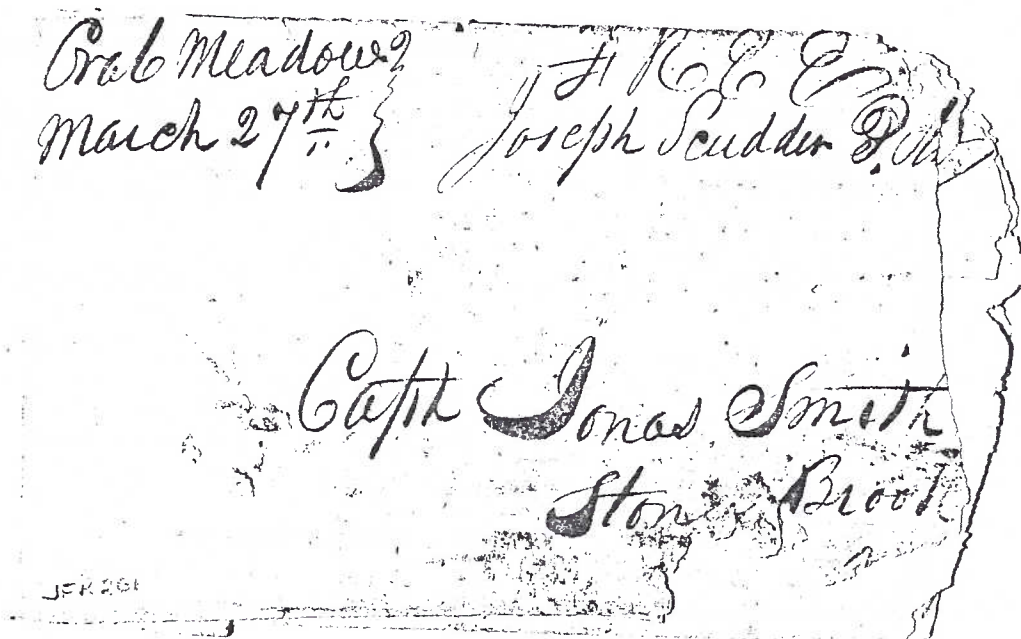 Crab Meadow
March 27th
FREE
Joseph Scudder P.M.
Capt Jonas Smith
Stony Brook